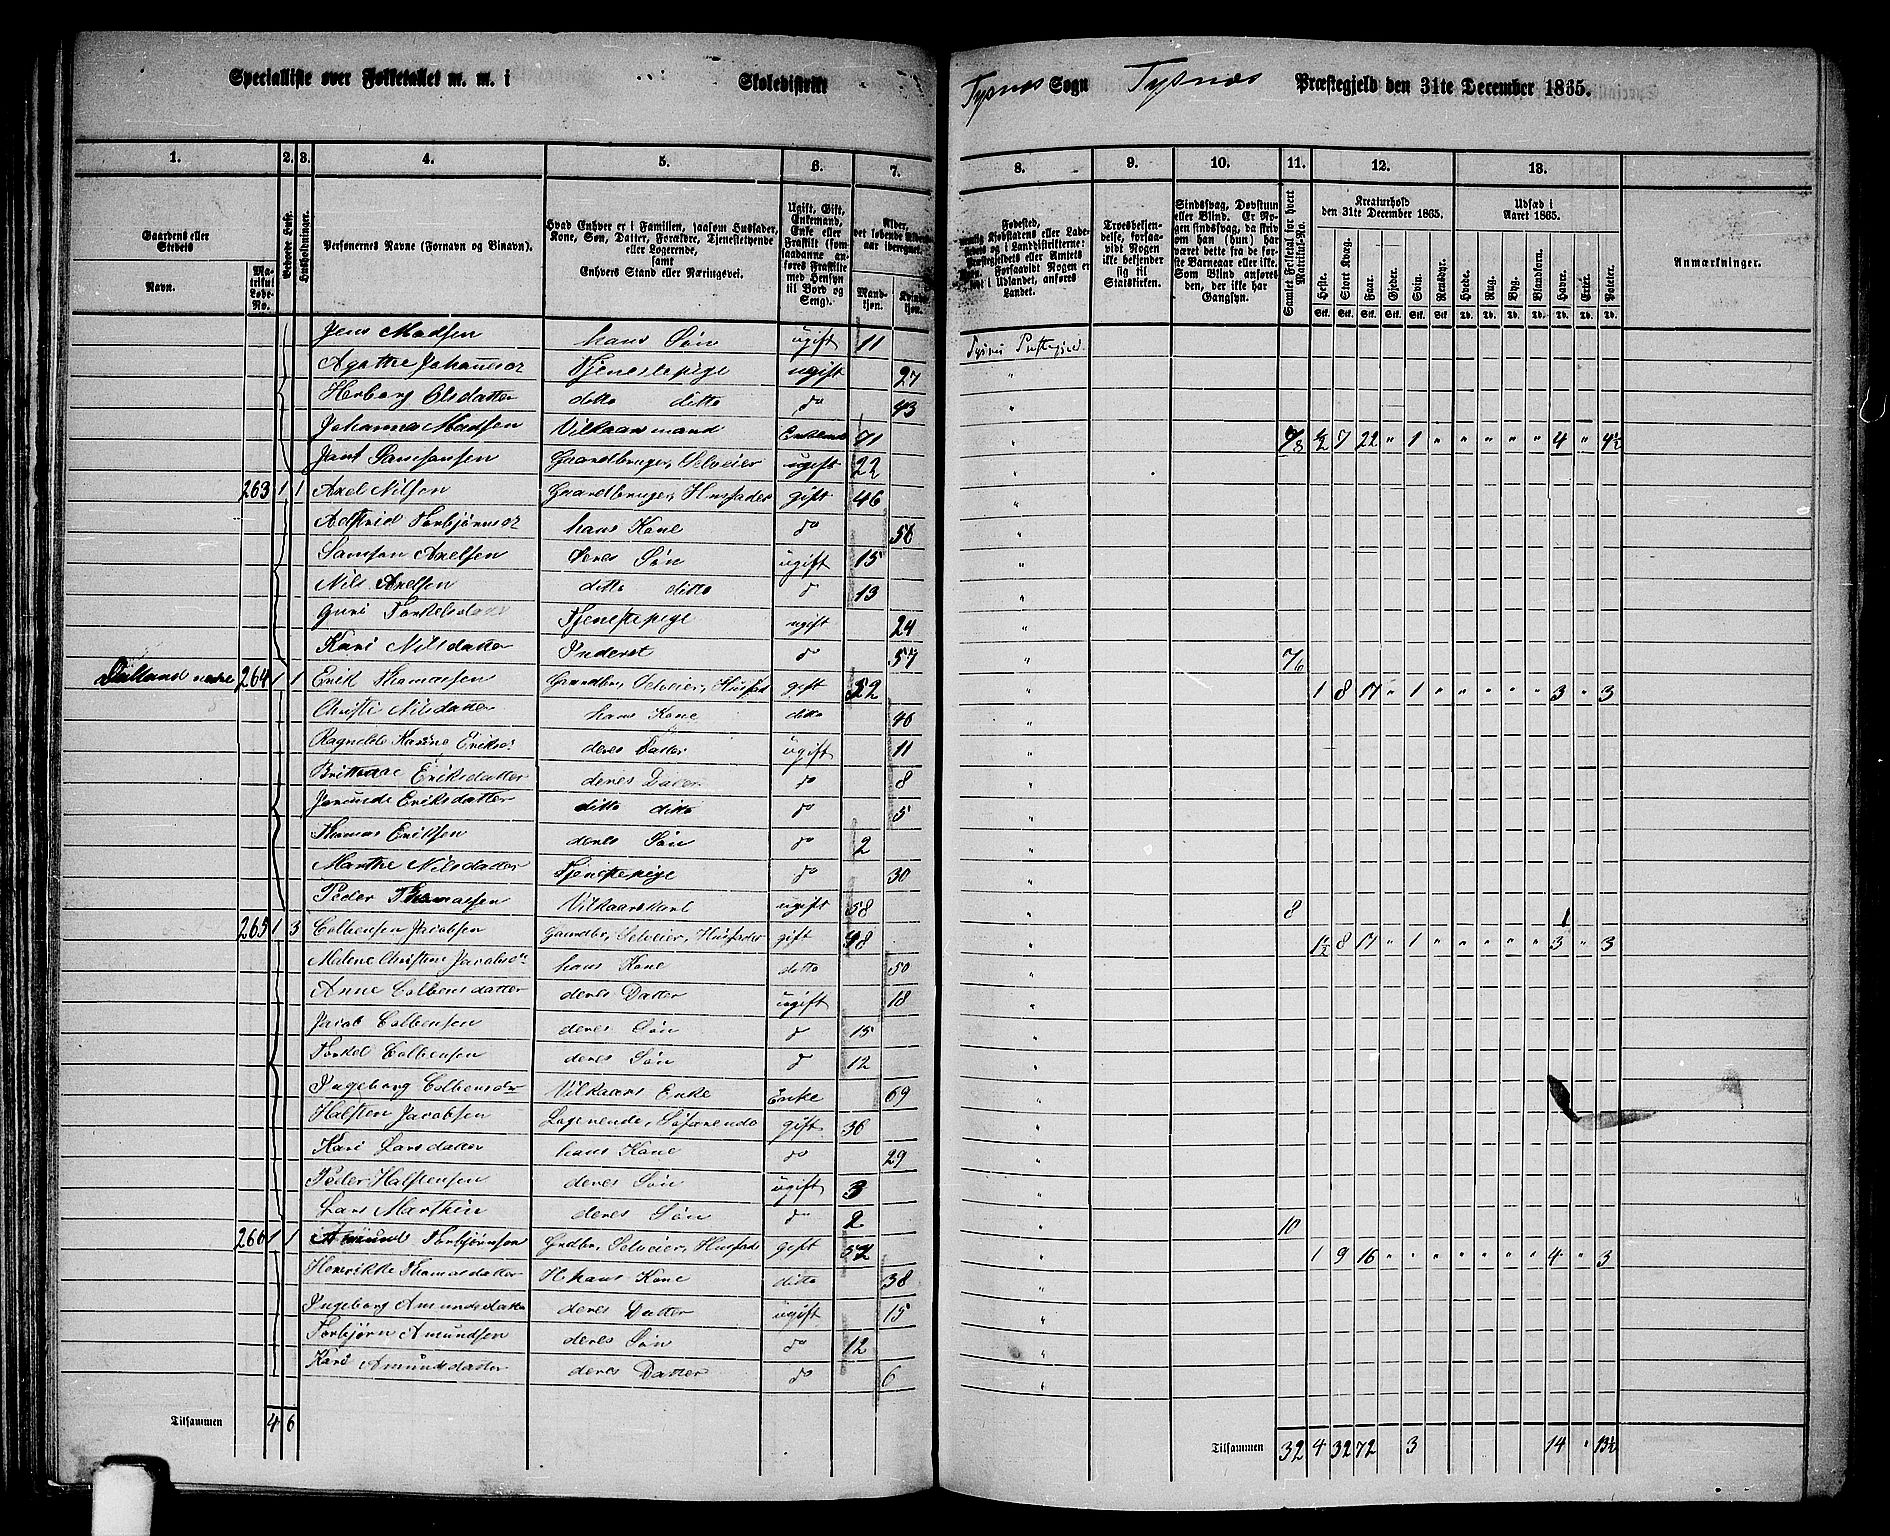 Specialliste over Folketallet m. m. i Skoledistrikt Tysnæs Sogn Tysnæs Præstegjeld den 31te December 1865.
1. 2. 3. 4. 5. 6. 7. 8. 9. 10. 11. 12. 13.
Gaardens eller Stedets
Navn.
Matrikul Løbe-No.
Beboede Huse.
Husholdninger.
Personernes Navne (Fornavn og Binavn).
Hvad Enhver er i Familien, saasom Husfader, Kone, Søn, Datter, Forældre, Tjenestetyende eller Logerende, samt Enhvers Stand eller Næringsvei.
Ugift, Gift, Enkemand, Enke eller Fraskilt (fornaadanne anføres Fraskilte med Hensyn til Bord og Seng).
Mandkjøn. Kvindekjøn.
Troesbekjendelse, forsaavidt Nogen ikke bekjender sig til Statskirken.
Samlet Folketal for hvert Matrikul-No.
Kreaturhold den 31te December 1865.
Udsæd i Aaret 1865.
Anmærkninger.
Heste. Stort Kvæg. Faar. Gjeder. Svin. Rensdyr. Hvede. Rug. Byg. Blandkorn. Havre. Erter. Poteter.
Stk. Stk. Stk. Stk. Stk. Stk. Td. Td. Td. Td. Td. Td. Td.
Jens Madsen hans Søn ugift 11
Agathe Johannesdr Tjenestepige ugift 27 "
Herborg Olsdatter ditto ditto do 43 "
Johannes Madsen Vilkaarsmand Enkem 71 " ½ 7 22 " 1 " " " " " 4 " 4½
Samsonsen Gaardbruger, Selveier ugift 22 "
263 1 1 Axel Nilsen Gaardbruger, Husfader gift 46 "
Torbjørnsdr hans Kone do 56 "
Samson Axelsen deres Søn ugift 15 "
Nils Axelsen ditto ditto do 13 "
Guri Torkelsdatter Tjenestepige ugift 24 "
Kari Nilsdatter Inderst do 57 "
264 1 1 Erik Thomassen Gaardbr, Selveier, Husfad gift 52 " 1 8 17 " 1 " " " " " 3 " 3
Christi Nilsdatter hans Kone ditto 40 "
Ragnilde Karine Eriksdr deres Datter ugift 11 "
Eriksdatter deres Datter do 8 "
Eriksdatter ditto ditto do 5 "
Thomas Eriksen deres Søn do 2 "
Marthe Nilsdatter Tjenestepige do 30 "
Peder Thomassen Vilkaarskarl ugift 58 " 8
265 1 3 Colbensen Jacobsen Gaardbr, Selveier, Husfader gift 48 " 1½ 8 17 " 1 " " " " " 3 " 3
Malene Christine Jacobsdr hans Kone ditto 50 "
Anne Colbensdatter deres Datter ugift 18 "
Jacob Colbensen deres Søn do 15 "
Torkel Colbensen deres Søn do 12 "
Ingeborg Colbensdr Vilkaars Enke Enke 69 "
Halsten Jacobsen Logerende, Søfarende gift 36 "
Kari Larsdatter hans Kone do 29 "
Peder Halstensen deres Søn ugift 3 "
Lars Marthin deres Søn do 2 " 10
266 1 1 Amund Torbjørnsen Grdbr, Selveier, Husfad gift 52 " 1 9 16 " " " " " " " 4 " 3
Henrikke Thomasdatter hans Kone ditto 38 "
Ingeborg Amundsdatter deres Datter ugift 15 "
Torbjørn Amundsen deres Søn do 12 "
Kari Amundsdatter deres Datter do 6 "
Tilsammen 4 6
Tilsammen 32 4 32 72 3 14 " 13½